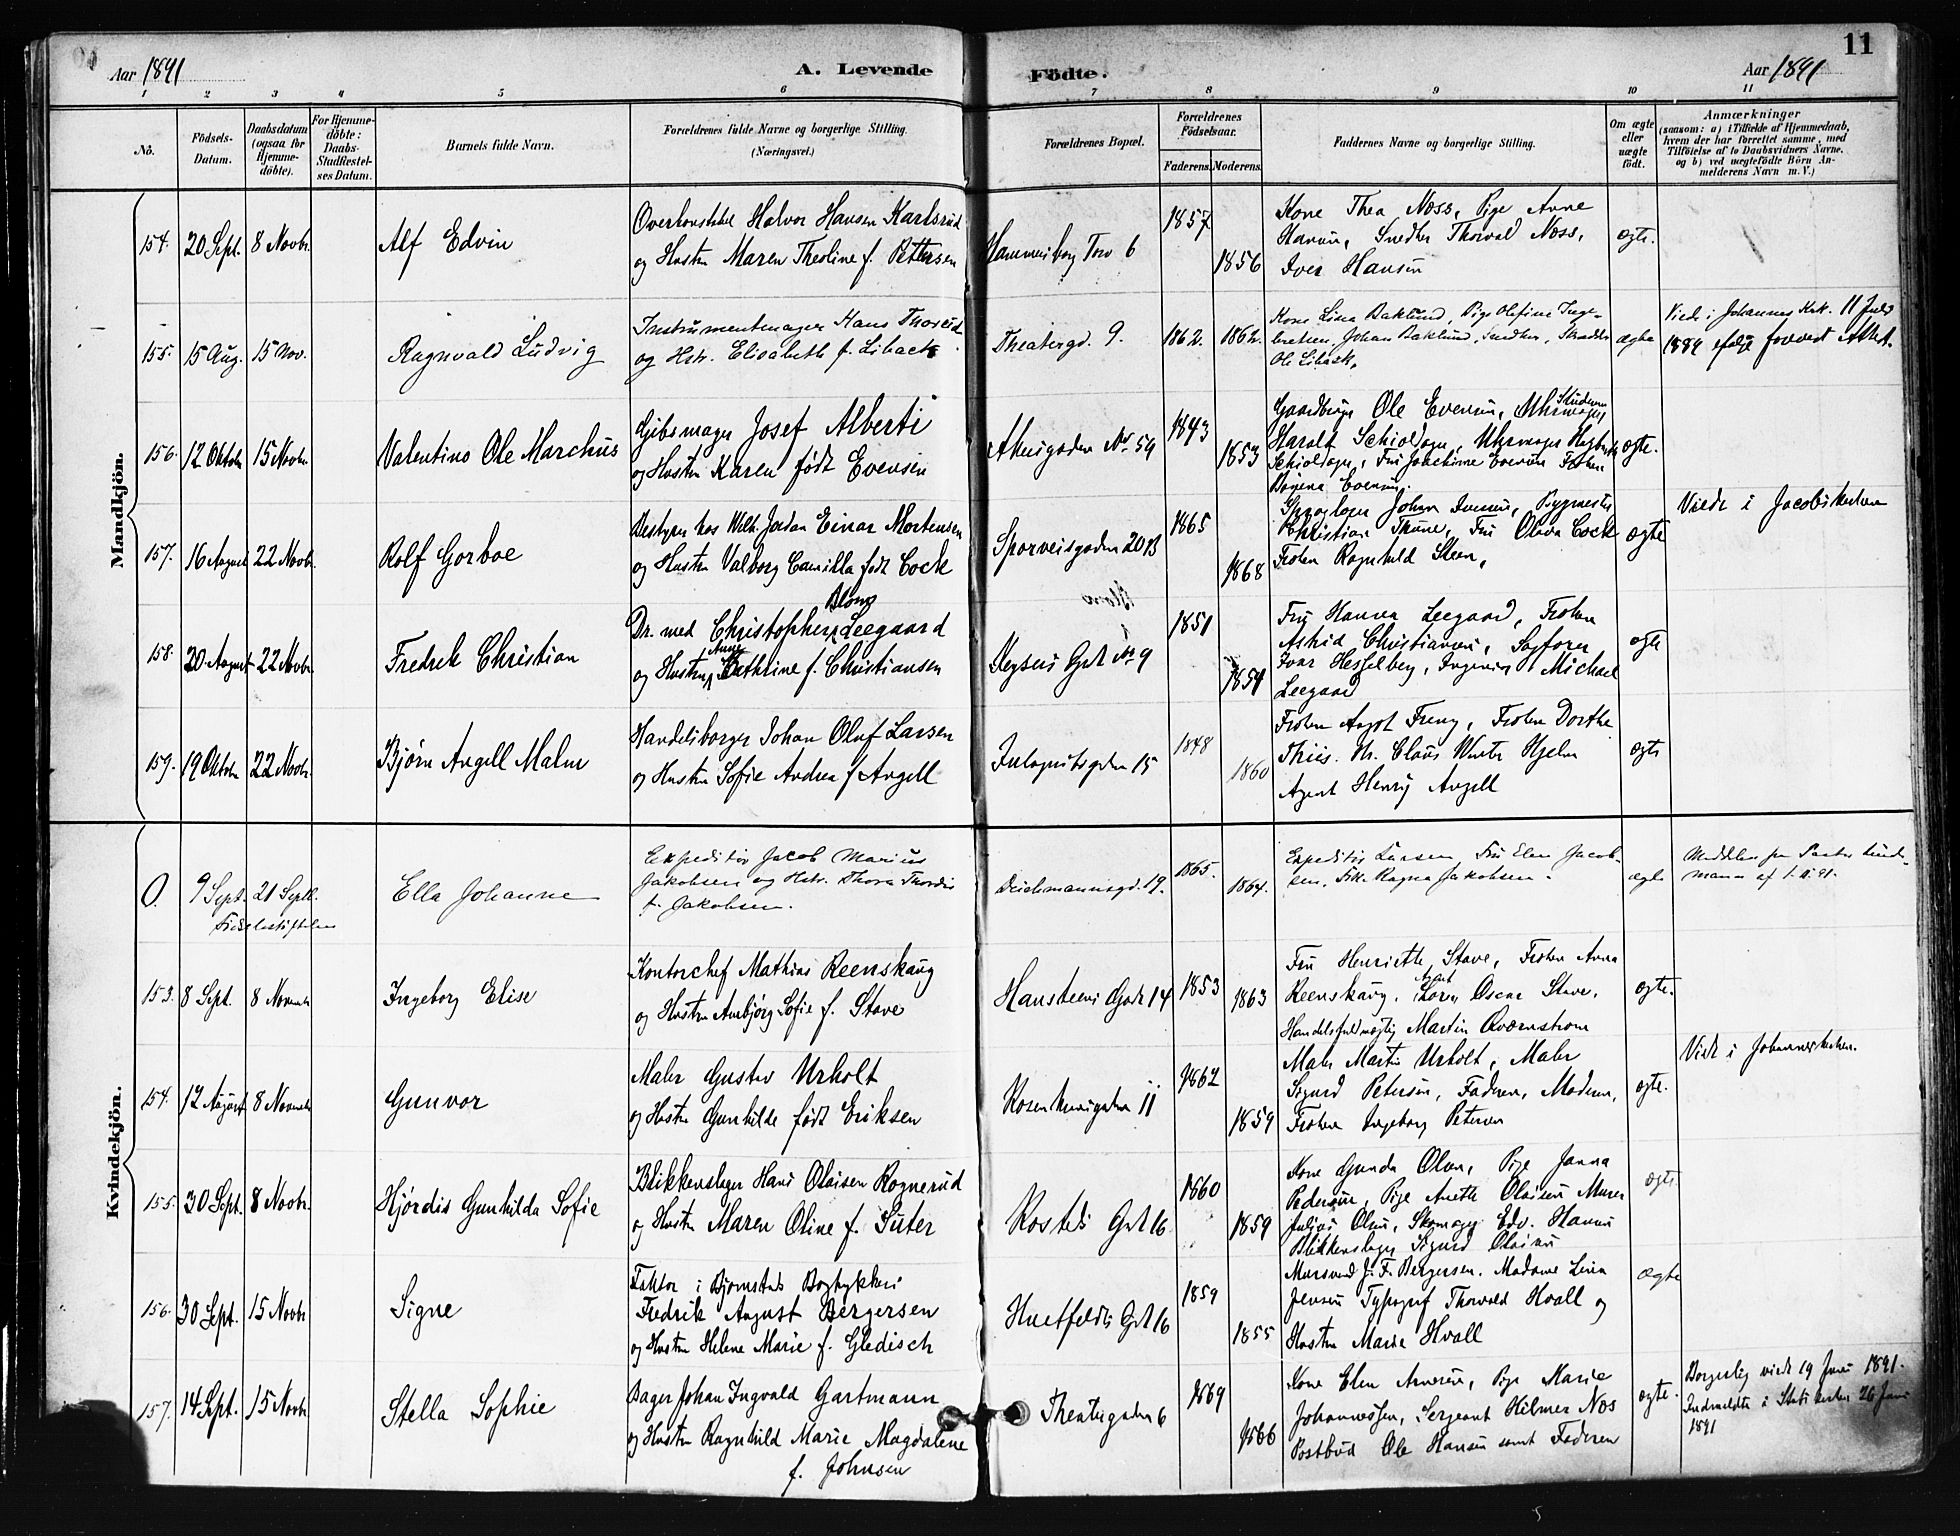 11
Aar 1891
A. Levende
Födte.
Aar 1891
1 2 3 4 5 6 7 8 9 10 11
No.
Födsels-
Datum.
Daabsdatum
(ogsaa for
Hjemme-
döbte).
For Hjemme-
döbte:
Daabs-
Stadfæstel-
ses Datum.
Barnets fulde Navn.
Forældrenes fulde Navne og borgerlige Stilling.
(Næringsvei.)
Forældrenes Bopæl.
Forældrenes
Födselsaar.
Faderens.
Moderens.
Faddernes Navne og borgerlige Stilling.
Om ægte
eller
uægte
födt.
Anmærkninger
(saasom: a) i Tilfælde af Hjemmedaab,
hvem der har forrettet samme, med
Tilföielse af to Daabsvidners Navne.
og b) ved uægtefödte Börn An-
melderens Navn m. V.)
Mandkjön.
154. 20 Sept. 8 Novbr.
Alf Edvin
Overkonstabel Halvor Hansen Karlsrud
og Hustru Maren Theoline f. Pettersen
Hammersborg Torv 6
1857
1856
Kone Thea Næss, Pige Anne
Hansen, Snedker Thorvald Næss,
Iver Hansen
ægte.
155. 15 Aug. 15 Nov.
Ragnvald Ludvig
Instrumentmager Hans Thorud
og Hstr. Elisabeth f. Libæck
Theatergd. 9.
1862.
1862.
Kone Lina Baklund, Pige Olefine Inge-
bretsen, Johan Baklund, Snedker, Skrædder
Ole Libæck,
ægte
Viede i Johannes Krk. 11 Juli
1889 ifølge forevist Attest.
156. 12 Oktober 15 Novbr.
Valentino Ole Marchus
Gibsmager Josef Alberti
og Hustru Karen født Evensen
Akersgaden No 59
1843
1853
Gaardbruger Ole Evensen, Uhrmager
Student
Harald Schioldager, Uhrmager
Schioldager, Fru Jakobine Evensen Frøken
Evensen.
ægte.
157. 16 August 22 Novbr.
Rolf Gorboe
Bestyrer hos Wilh. Jordan Einar Mortensen
og Hustru Valborg Camilla født Cock
Sporveisgaden 20B
1865
1868
Johan Iversen, Bygmester
Christian Thune, Fru Olava Cock
Frøken Ragnhild Steen,
ægte
Viede i Jacobskirken
158. 20 August 22 Novbr.
Fredrik Christian
Blom
Dr. med Christopher Leegaard
Anne
og Hustru Cathrine f. Christiansen
Keysers Gade No 9
1851
1854
Fru Hanna Leegaard, Frøken
Astrid Christiansen, Sagfører
Ivar Hesselberg, Ingeniør Michael
Leegaard
ægte
159. 19 Oktober 22 Novbr.
Bjørn Angell Malm
Handelsborger Johan Oluf Larsen
og Hustru Sofie Andrea f Angell
15
1848
1860
Frøken Aagot Freng, Frøken Dorthe
Thiis. Hr. Claus Winter Hjelm
Agent Henry Angell
ægte
Kvindekjön.
0. 9 Sept. 21 Septb.
Fødselsstiftelsen
Ella Johanne
Expeditør Jacob Marius
Jakobsen og Hstr. Thora Thordis
f. Jakobsen.
Deichmannsgd. 19.
1865.
1864.
Expeditør Larsen, Fru Elen Jacob-
sen, Frk. Ragna Jakobsen.
ægte
Meddelt fra Pastor Lind-
mann af
153. 8 Sept. 8 November
Ingeborg Elise
Kontorchef Mathias Reenskaug
og Hustru Annbjørg Sofie f. Stave
Hansteens Gade 14
1853
1863
Fru Henriette Stave, Frøken Anna
Reenskaug, Oscar Stave,
Handelsfuldmægtig Martin Qværnstrøm
ægte.
154. 12 August 8 November
Gunvor
Maler Gustav Urholt
og Hustru Gunhilde født Eriksen
Rosenkrantzgaden 11
1862
1859
Maler Martin Urholt, Maler
Sigurd Petersen, Faderen, Moderen,
Frøken Ingeborg Petersen
ægte.
Viede i Johanneskirken.
155. 30 Sept. 8 Novbr.
Hjördis Gunhilda Sofie
Blikkenslager Hans Olaisen Rognerud
og Hustru Maren Oline f. Suter
Rosteds Gade 16
1860
1859
Kone Gunda Olsen, Pige Janna
Pedersen, Pige Anette Olaisen Murer
Julius Olsen, Skomager Edv. Hansen
Blikkenslager Sigurd Olaisen
ægte
156. 30 Sept. 15 Novbr
Signe
Faktor i Bjørnstads Bogtrykkeri
Fredrik August Bergersen
og Hustru Helene Marie f. Gledisch
Huitfeldts Gade 16
1859
1855
Mursvend J. F. Bergersen. Madame Lina
Jensen Typograf Thorvald Hvall og
Hustru Marie Hvall
ægte
157. 14 Sept. 15 Novbr
Stella Sophie
Bager Johan Ingvald Gartmann
og Hustru Ragnhild Marie Magdalene
f. Johnsen
Theatergaden 6
1869
1866
Kone Elen Arnesen, Pige Marie
Johannessen, Sergeant Hilmer Næs
Postbud Ole Hansen samt Faderen
ægte.
Borgerlig viede 19 Juni 1891.
Indmeldte i Statskirken 26 Juni
1891